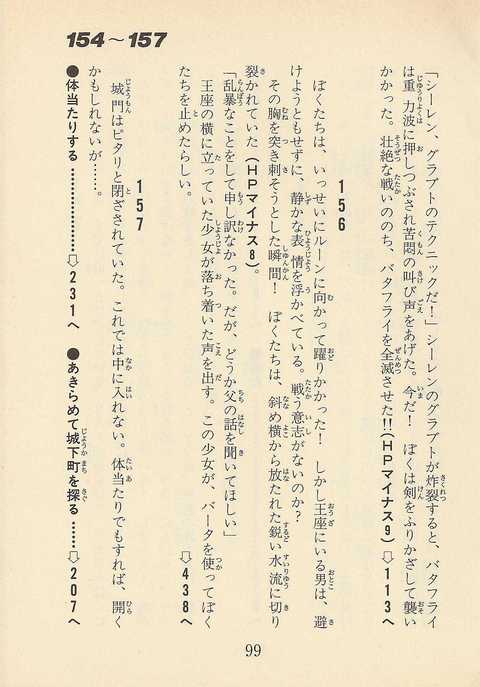 154〜157
「シーレン、グラブトのテクニックだ！」シーレンのグラブトが炸裂すると、バタフライ
は重力波に押しつぶされ苦悶の叫び声をあげた。今だ！　ぼくは剣をふりかざして襲い
かかった。壮絶な戦いののち、バタフライを全滅させた!!（HPマイナス9）⇨113へ
156
ぼくたちは、いっせいにルーンに向かって躍りかかった！　しかし王座にいる男は、避
けようともせずに、静かな表情を浮かべている。戦う意志がないのか？
その胸を突き刺そうとした瞬間！　ぼくたちは、斜め横から放たれた鋭い水流に切り
裂かれていた（HPマイナス8）。
「乱暴なことをして申し訳なかった。だが、どうか父の話を聞いてほしい」
王座の横に立っていた少女が落ち着いた声を出す。この少女が、バータを使ってぼく
たちを止めたらしい。
⇨438へ
157
城門はピタリと閉ざされていた。これでは中に入れない。体当たりでもすれば、開く
かもしれないが……。
●体当たりする……………⇨231へ
●あきらめて城下町を探る……⇨207へ
99